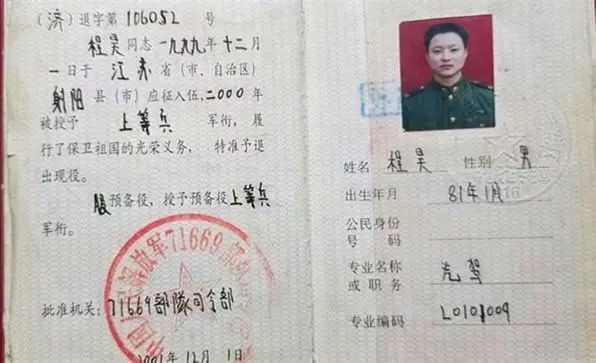 (济)退字第106052号
程昊同志一九九九年十二月
一日于江苏省(市、自治区)
射阳县(市)应征入伍,二000年
被授予上等兵军衔,履
行了保卫祖国的光荣义务,特准予退
出现役。
服预备役,授予预备役上等兵
军衔。
71669
批准机关:71669部隊司令部
2001年12月1日
姓名程昊性别男
出生年月81年1月
公民身份
号码
专业名称
或职务
专业编码L0101009